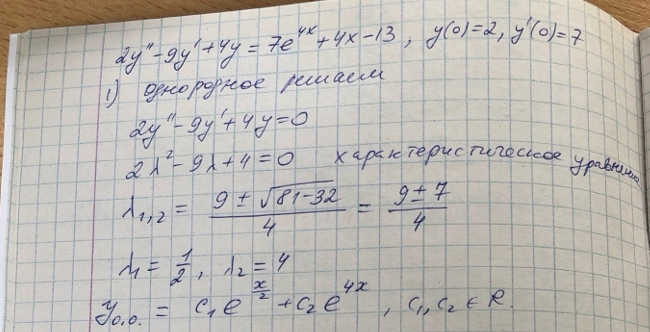 2y'' - 9y' + 4y = 7e^{4x} + 4x - 13, y(0) = 2, y'(0) = 7
1) однородное решаем
2y'' - 9y' + 4y = 0
2λ² - 9λ + 4 = 0 характеристическое уравнение
λ_{1,2} = \frac{9 ± \sqrt{81-32}}{4} = \frac{9 ± 7}{4}
λ_1 = \frac{1}{2}, λ_2 = 4
y_{о.о.} = c_1 e^{\frac{x}{2}} + c_2 e^{4x}, c_1, c_2 ∈ R.